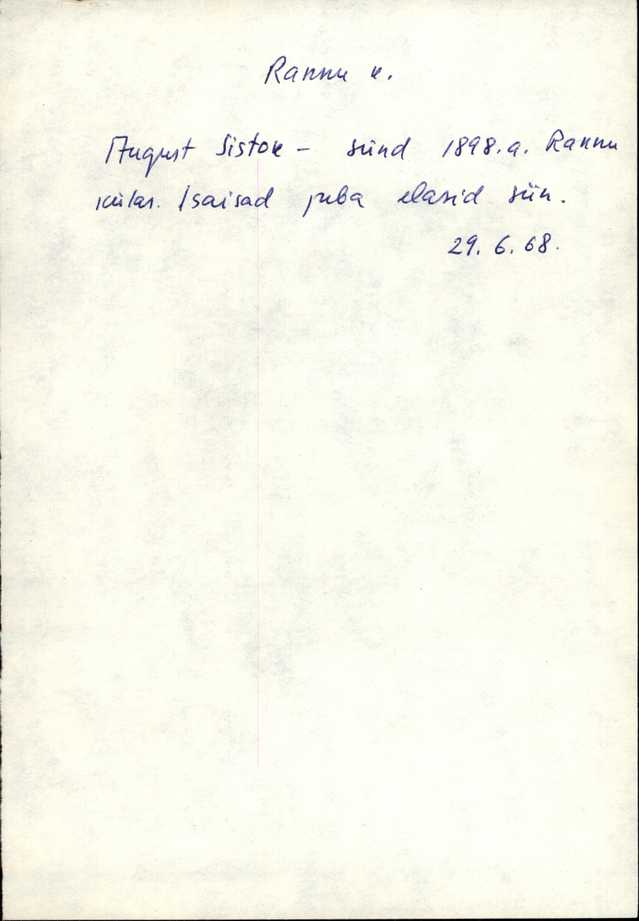 Rannu k.
August Sistok - sünd 1898.a. Rannu
külas. Isaisad juba elasid siin.
29. 6. 68.